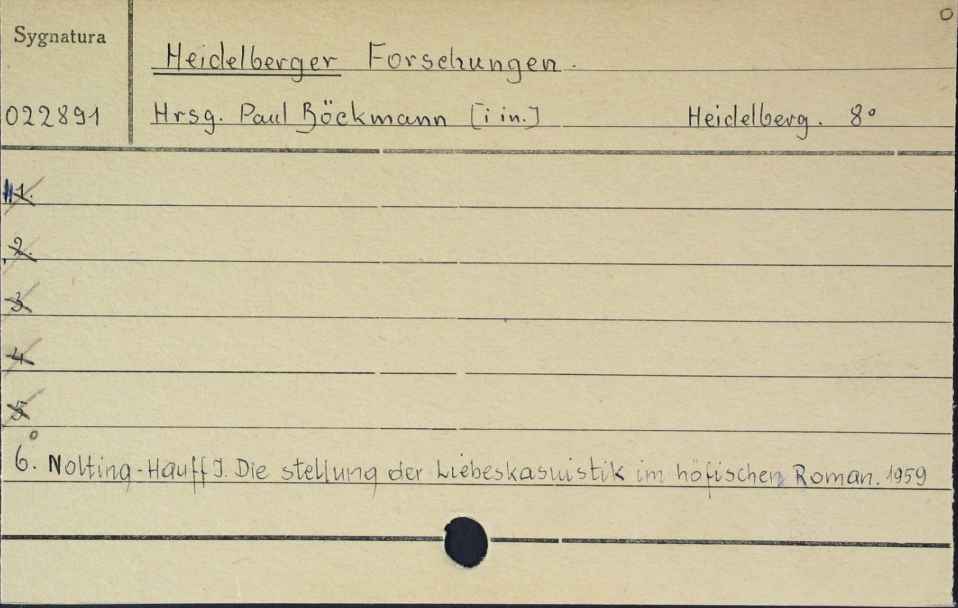 0
Sygnatura
Heidelberger Forschungen.
022891
Hrsg. Paul Böckmann [i in.] Heidelberg. 8°
1.
2.
3
4
5
6. Nolting-Hauff I. Die stellung der Liebeskasuistik im höfischen Roman. 1959